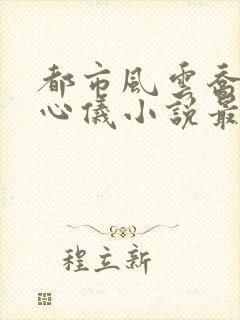 都市風雲喬
心儀小說最
程立新